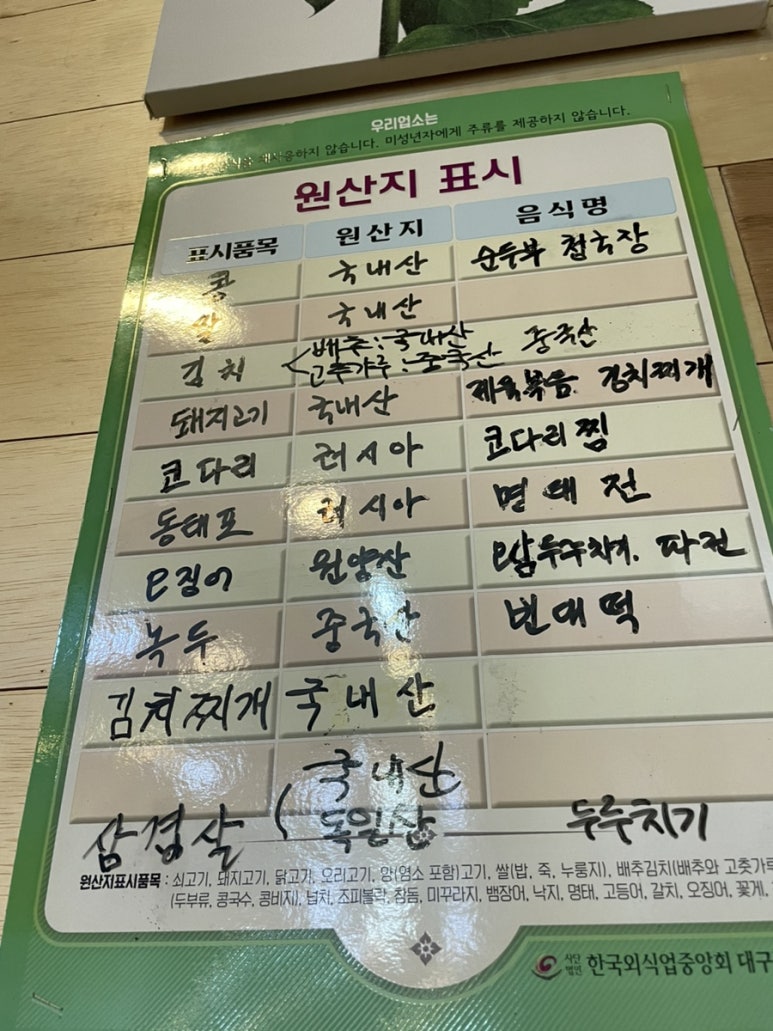 우리업소는
재사용하지 않습니다. 미성년자에게 주류를 제공하지 않습니다.
원산지 표시
표시품목 원산지 음식명
콩 국내산 순두부 청국장
쌀 국내산
김치 배추:국내산 중국산
고추가루:중국산
돼지고기 국내산 제육볶음 김치찌개
코다리 러시아 코다리찜
동태포 러시아 명태전
오징어 원양산 오삼두루치기. 파전
녹두 중국산 빈대떡
김치찌개 국내산
국내산
삼겹살 ( 독일산 두루치기
원산지표시품목 : 쇠고기, 돼지고기, 닭고기, 오리고기, 양(염소 포함)고기, 쌀(밥, 죽, 누룽지), 배추김치(배추와 고춧가루
(두부류, 콩국수, 콩비지), 넙치, 조피볼락, 참돔, 미꾸라지, 뱀장어, 낙지, 명태, 고등어, 갈치, 오징어, 꽃게,
사단법인 한국외식업중앙회 대구